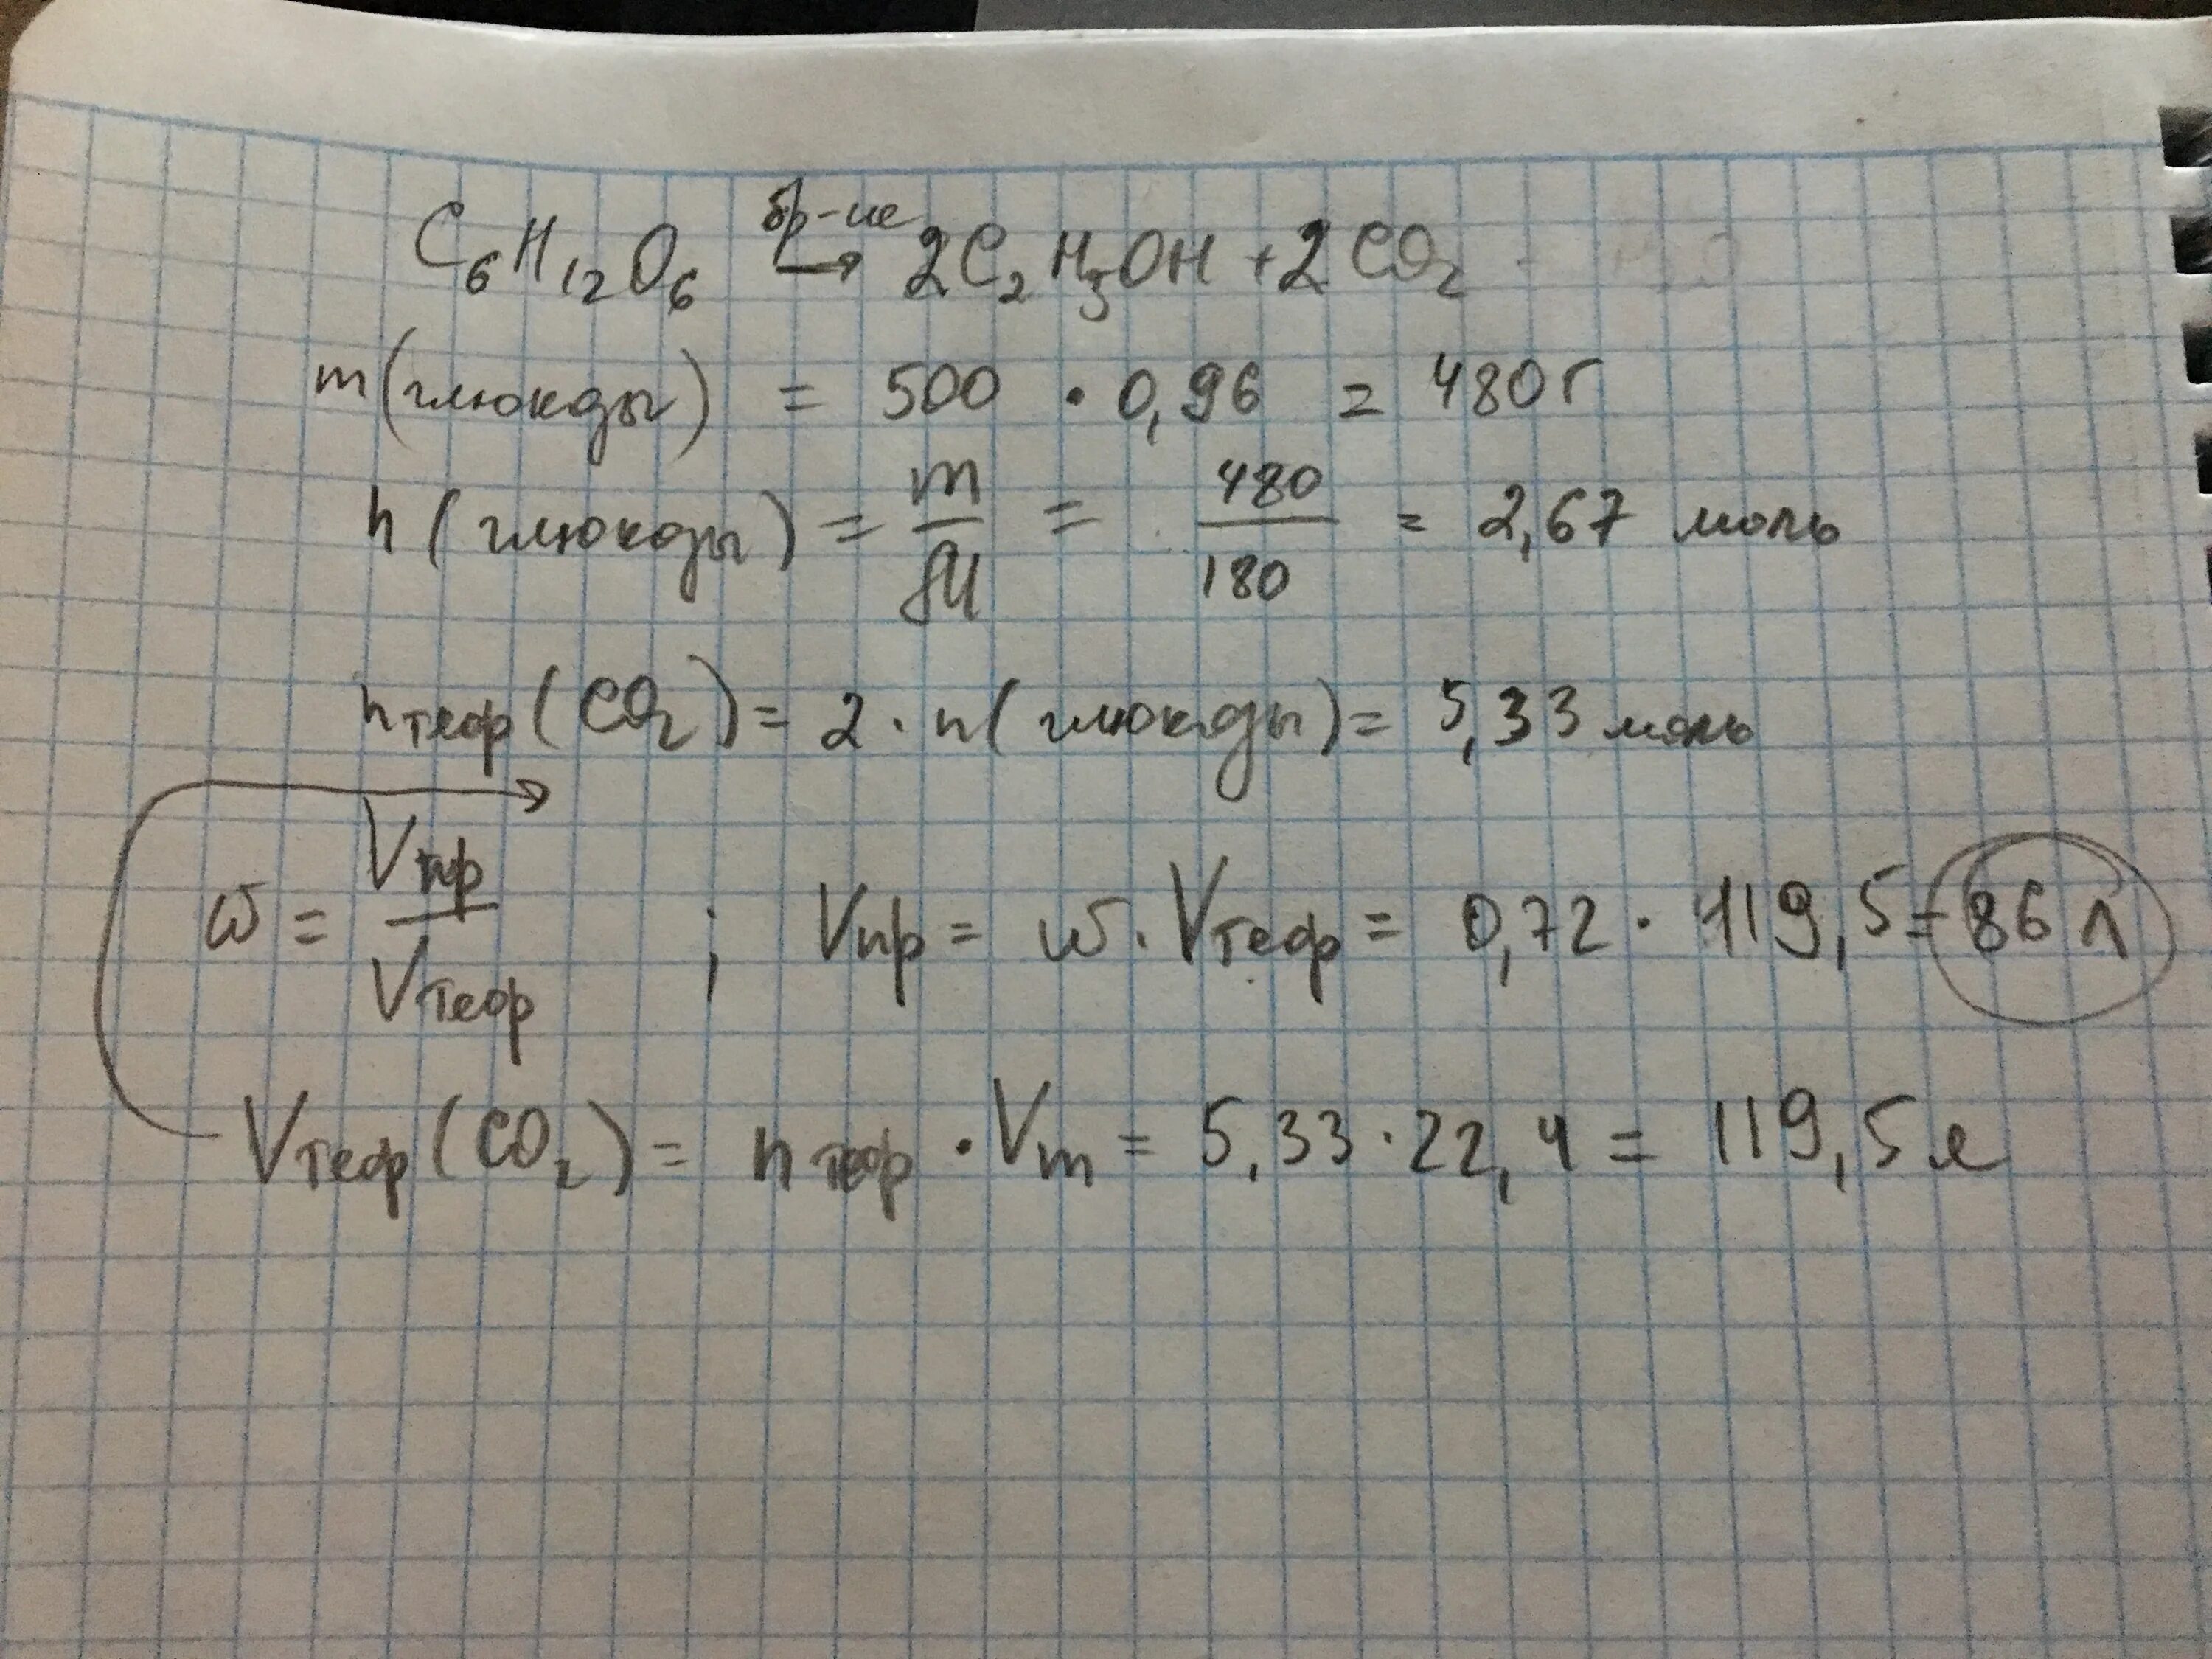 C₆H₁₂O₆ бр-ие → 2C₂H₅OH + 2CO₂
m(глюкозы) = 500 · 0,96 = 480 г
n(глюкозы) = m/M = 480/180 = 2,67 моль
nтеор(CO₂) = 2 · n(глюкозы) = 5,33 моль
ω = Vпр/Vтеор ; Vпр = ω · Vтеор = 0,72 · 119,5 = 86 л
Vтеор(CO₂) = nтеор · Vm = 5,33 · 22,4 = 119,5 л